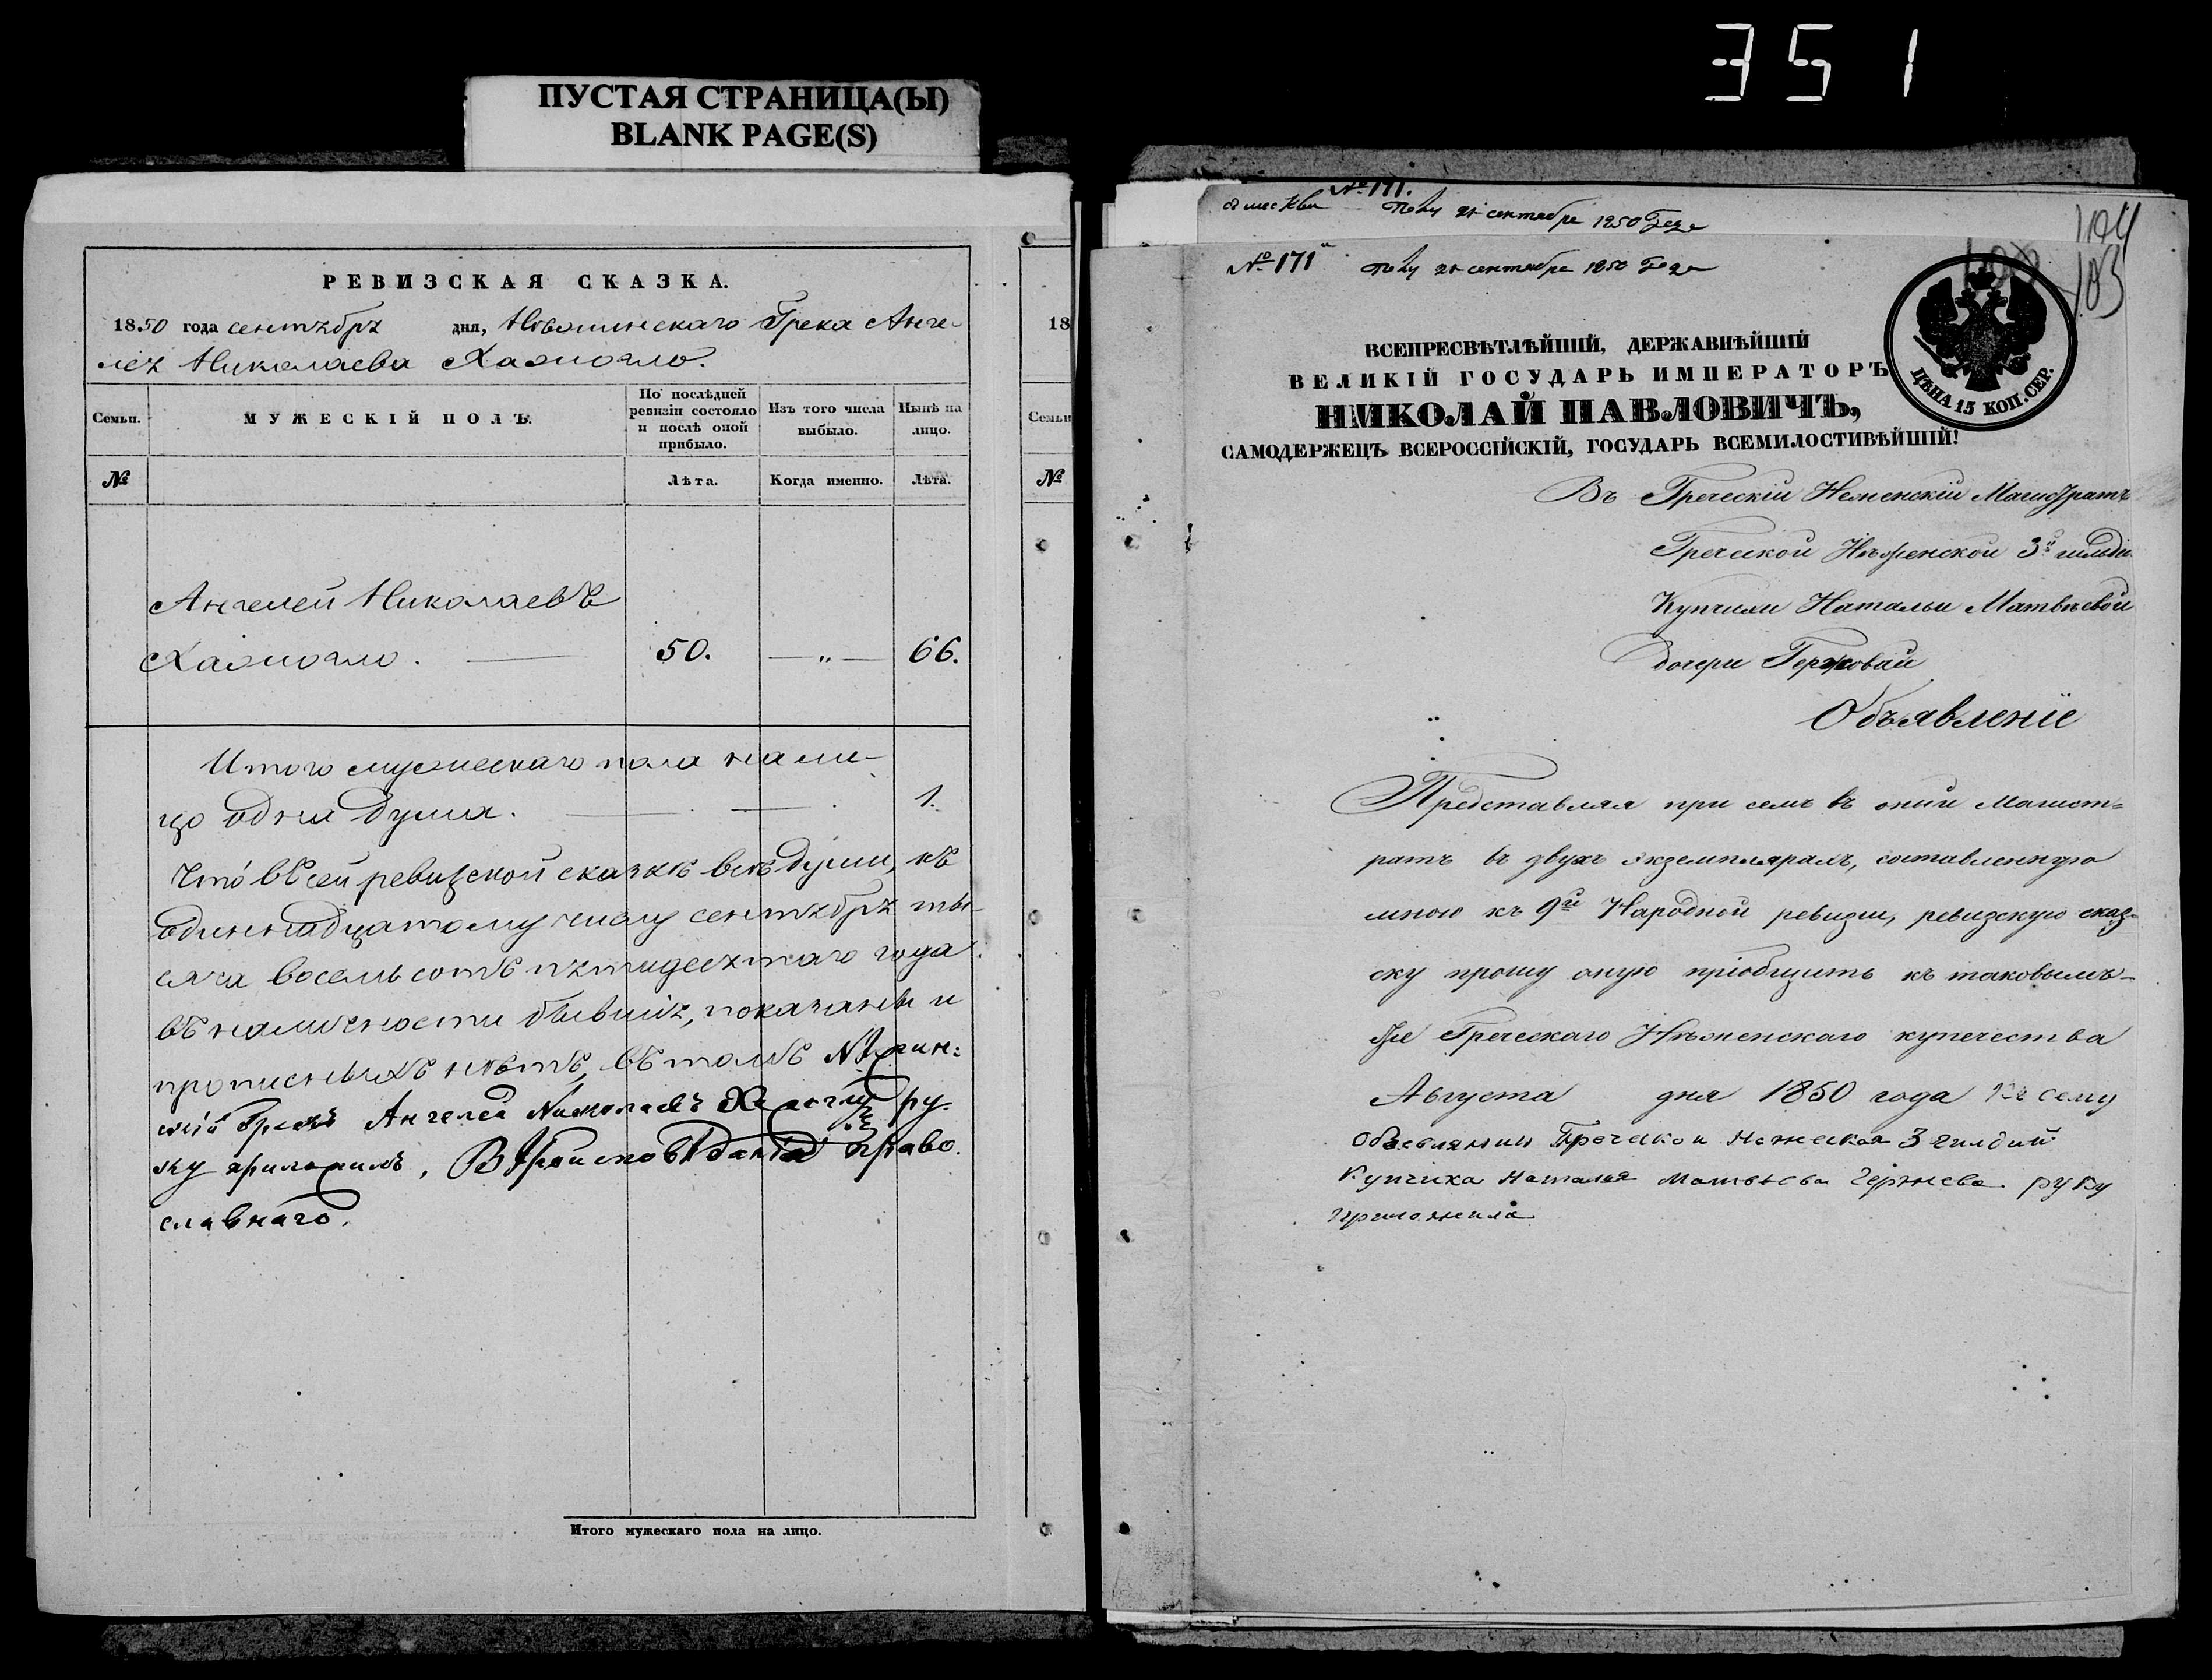 351
ПУСТАЯ СТРАНИЦА(Ы)
BLANK PAGE(S)
РЕВИЗСКАЯ СКАЗКА.
1850 года сентября дня, Нѣжинскаго Грека Анге-
лея Николаева Хаджогло.
Семьи.
МУЖЕСКІЙ ПОЛЪ.
По послѣдней ревизіи состояло и послѣ оной прибыло.
Изъ того числа выбыло.
Нынѣ на лицо.
№
Лѣта.
Когда именно.
Лѣта.
Ангелей Николаевъ
Хаджогло. 50. — „ — 66.
Итого мужескаго пола на ли-
цо одна душа. 1.
Что въ сей ревизской сказкѣ всѣ души, къ
одиннадцатому числу сентября ты-
сяча восемь сотъ пятидесятаго года
въ наличности бывшія, показаны и
прописныхъ нѣтъ, въ томъ Нѣжин:
скій Грекъ Ангелей Николаевъ ру-
ку приложилъ, Вѣроисповѣданія право.
славнаго.
Итого мужескаго пола на лицо.
18
Семьи
№
№ 171.
21 сентября 1850 Года
№ 171 21 сентября 1850 Года
104
103
ЦѢНА 15 КОП. СЕР.
ВСЕПРЕСВѢТЛѢЙШІЙ, ДЕРЖАВНѢЙШІЙ
ВЕЛИКІЙ ГОСУДАРЬ ИМПЕРАТОРЪ
НИКОЛАЙ ПАВЛОВИЧЪ,
САМОДЕРЖЕЦЪ ВСЕРОССІЙСКІЙ, ГОСУДАРЬ ВСЕМИЛОСТИВѢЙШІЙ!
Въ Греческій Нежинскій Магистратъ
Греческой Нѣженской 3й гильдіи
Купчихи Натальи Матвѣевой
дочери Гержовай
Объявленіе
Представляя при семъ въ оный Магист=
ратъ въ двухъ экземплярахъ, составленную
мною къ 9й Народной ревизіи, ревизскую сказ-
ску прошу оную пріобщить къ таковымъ-
же Греческаго Нѣженскаго купечества
Августа дня 1850 года Къ сему
объевлянии Греческои Нежеская 3 гилдии
Купчиха Наталея Матвѣева Гержева руку
приложила